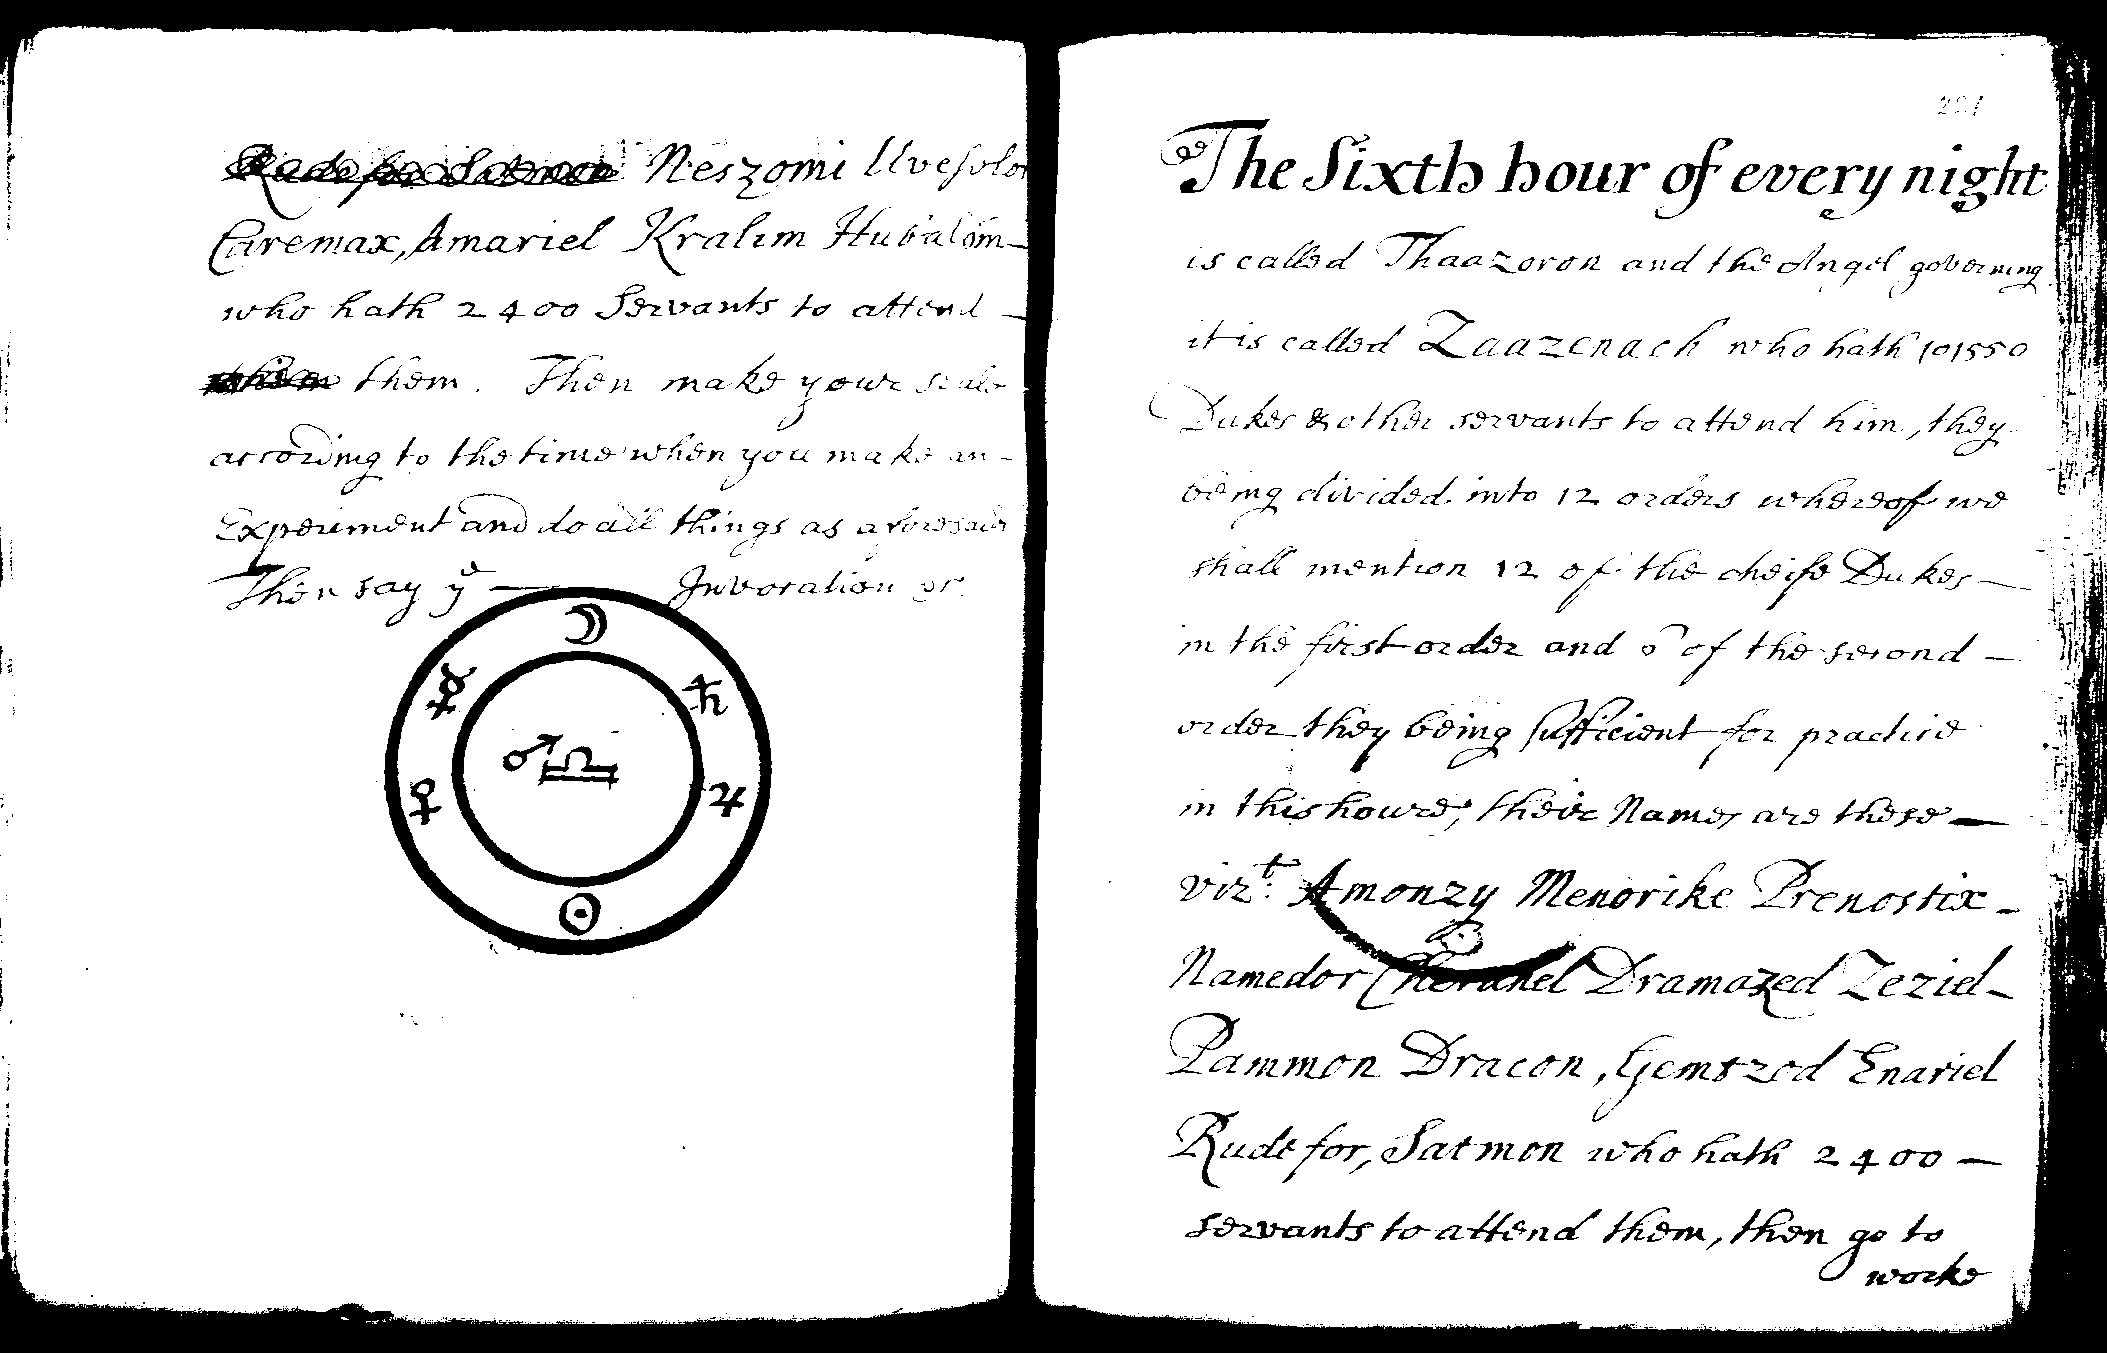 Neszomi
Caremax, Amariel Kralim
who hath 2400 Servants to attend —
them. Then make your seale
accoring to the time when you make an -
Experiment and do all things as aforesaid
Then say yᵉ — Invocation &c.
☽
☿ ♄
♂♎
♀ ♃
☉
The Sixth hour of every night
is called Thaazoron and the Angel governing
it is called Zaazenach who hath 101550
Dukes & other servants to attend him, they
being divided into 12 orders whereof we
shall mention 12 of the cheife Dukes —
in the first order and of the second —
order they being sufficient for practice
in this houre, their Names are these —
vizᵗ: Amonzy Menorike Prenostix -
Namedor Dramazed Zeziel -
Pammon Dracon, Gemszod Enariel
Rudefor, Satmon who hath 2400 —
servants to attend them, then go to
worke